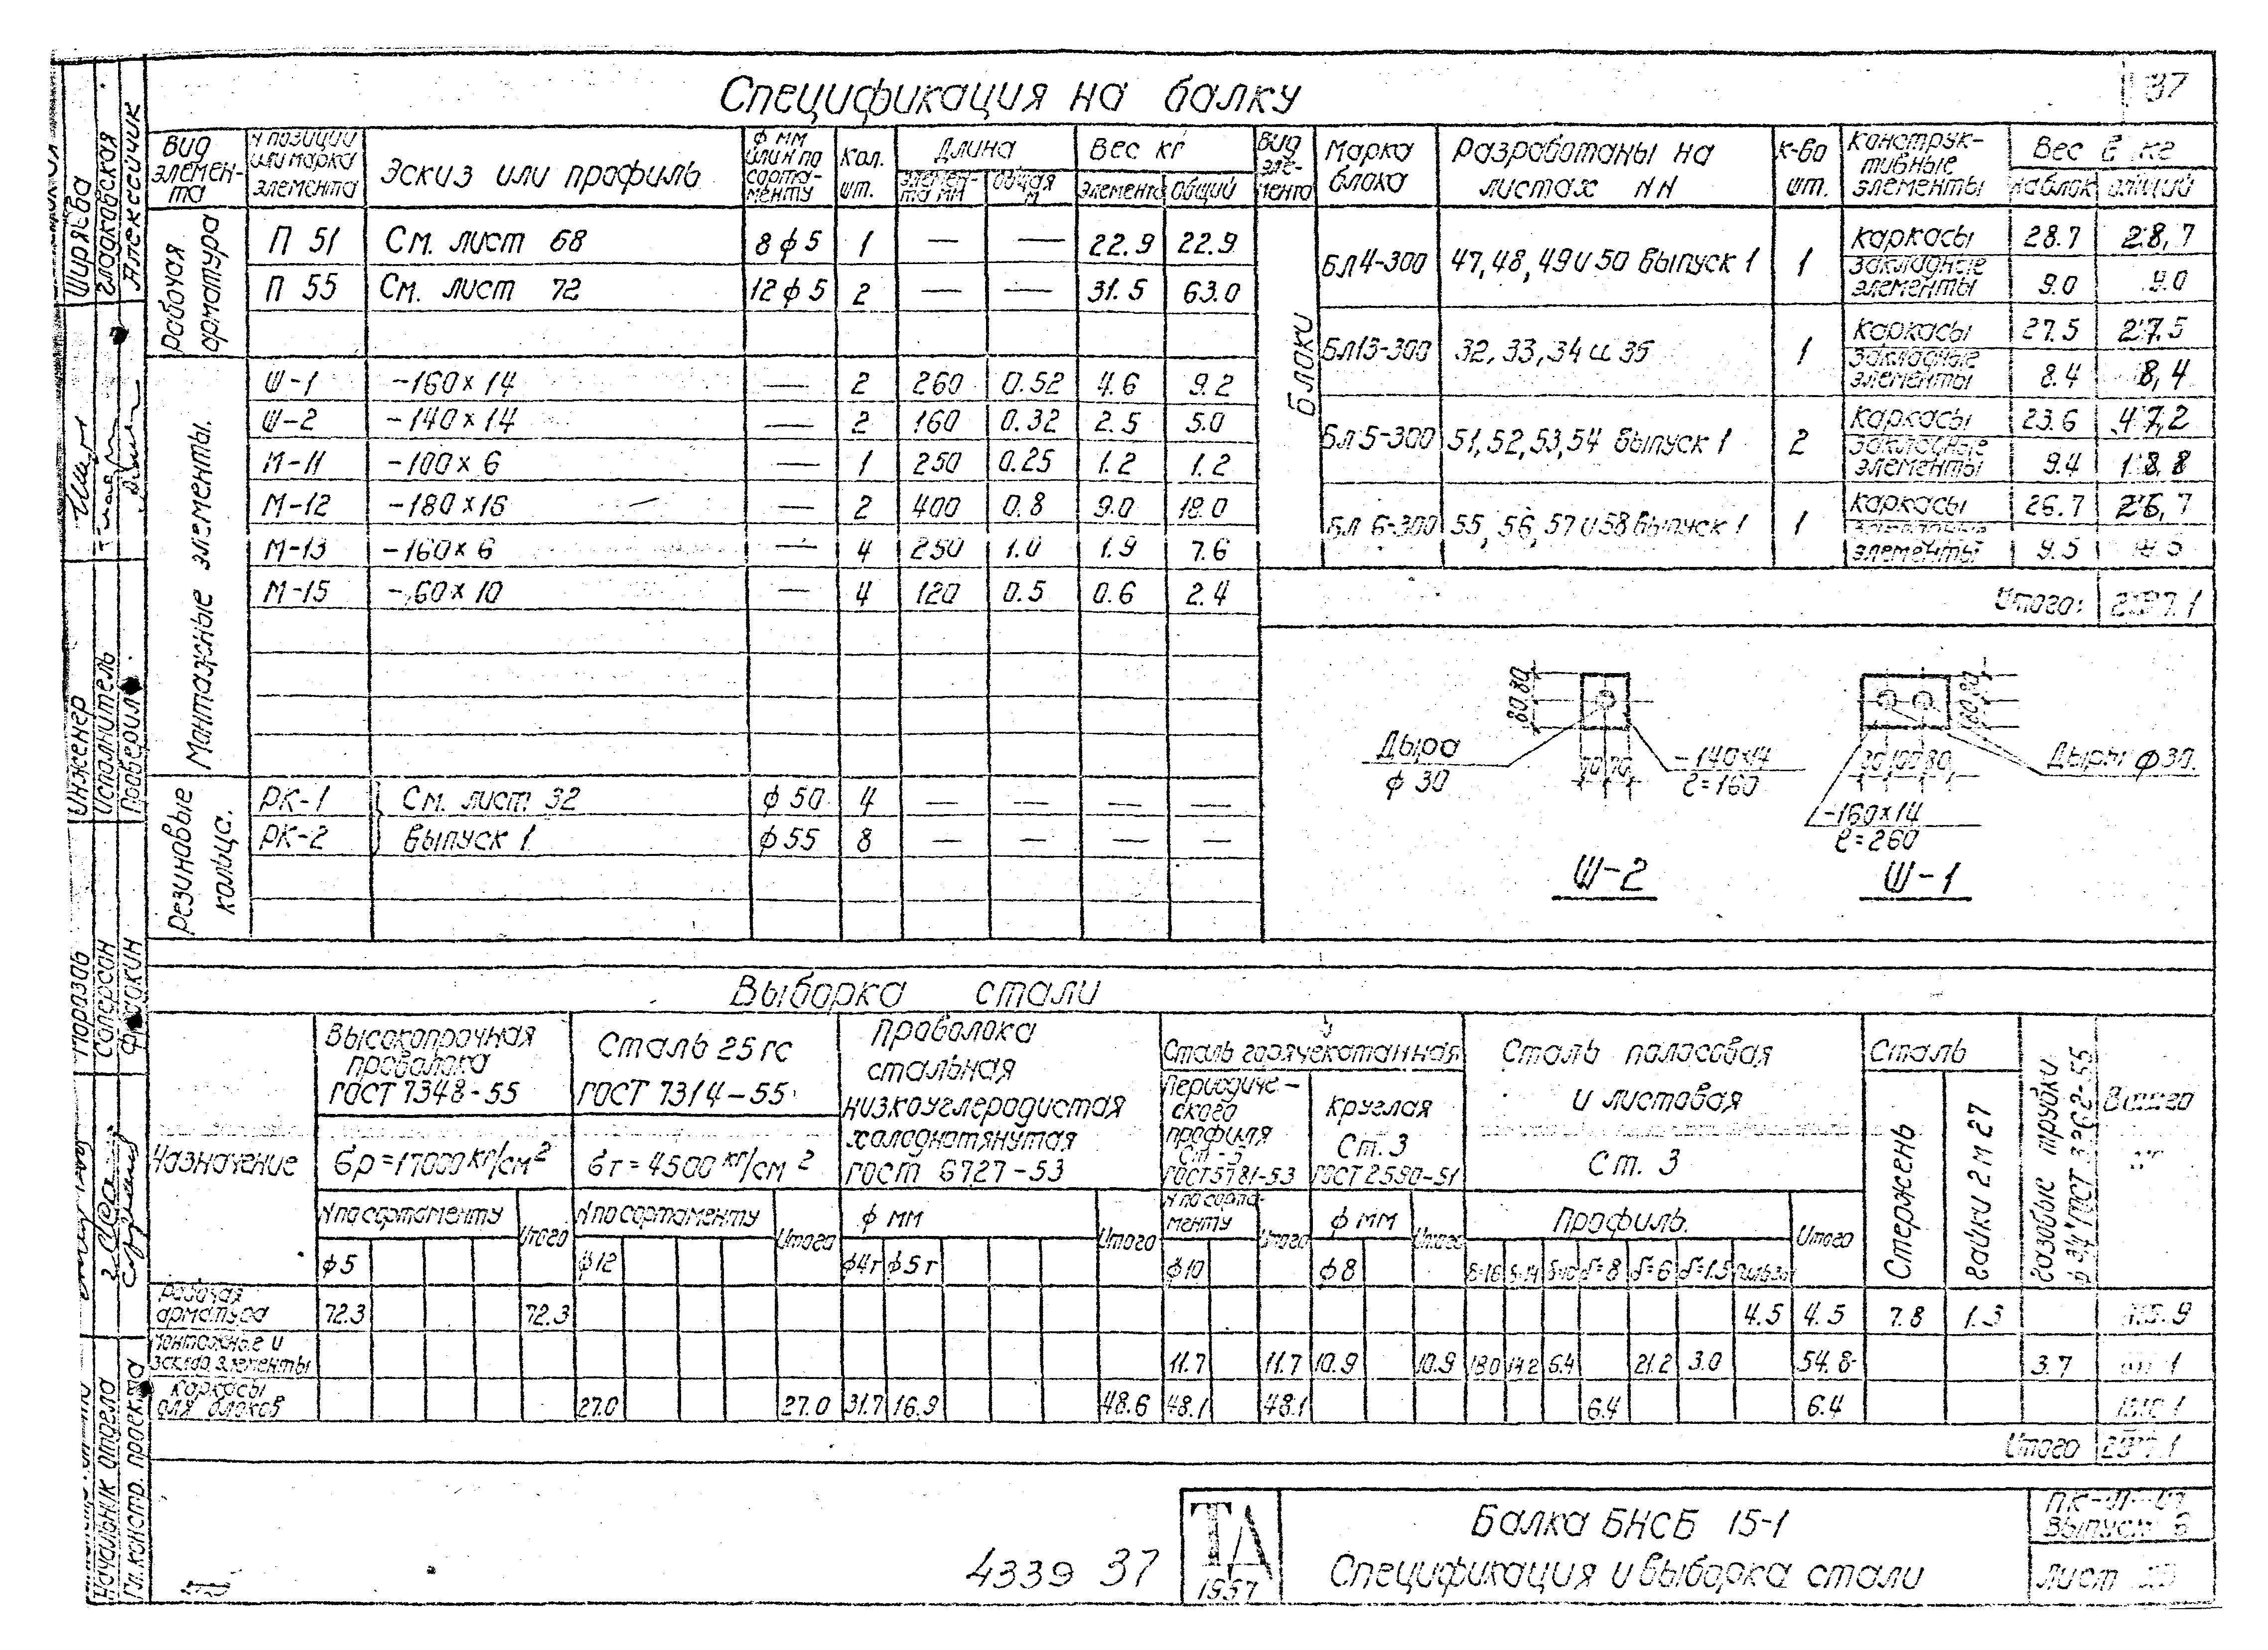 Спецификация на балку
37
Вид элемен-та | N позиции или марка элемента | Эскиз или профиль | ф мм или N по сорта-менту | Кол. шт. | Длина | Вес кг
элемен-та мм | общая м | элемента | общий
Рабочая арматура
П 51 | См. лист 68 | 8ф5 | 1 | — | — | 22.9 | 22.9
П 55 | См. лист 72 | 12ф5 | 2 | — | — | 31.5 | 63.0
Монтажные элементы.
Ш-1 | -160×14 | — | 2 | 260 | 0.52 | 4.6 | 9.2
Ш-2 | -140×14 | — | 2 | 160 | 0.32 | 2.5 | 5.0
М-11 | -100×6 | — | 1 | 250 | 0.25 | 1.2 | 1.2
М-12 | -180×16 | — | 2 | 400 | 0.8 | 9.0 | 18.0
М-13 | -160×6 | — | 4 | 250 | 1.0 | 1.9 | 7.6
М-15 | -60×10 | — | 4 | 120 | 0.5 | 0.6 | 2.4
Резиновые кольца.
РК-1 | См. лист 32 | ф50 | 4 | — | — | — | —
РК-2 | выпуск 1 | ф55 | 8 | — | — | — | —
Вид эле-мента | Марка блока | Разработаны на листах NN | к-во шт. | Конструк-тивные элементы | Вес в кг
на блок | общий
Блоки
Бл4-300 | 47, 48, 49 и 50 выпуск 1 | 1 | каркасы | 28.7 | 28,7
закладные элементы | 9.0 | 9.0
Бл13-300 | 32, 33, 34 и 35 | 1 | каркасы | 27.5 | 27.5
закладные элементы | 8.4 | 8,4
Бл5-300 | 51, 52, 53, 54 выпуск 1 | 2 | каркасы | 23.6 | 47,2
закладные элементы | 9.4 | 18,8
Бл 6-300 | 55, 56, 57 и 58 выпуск 1 | 1 | каркасы | 26.7 | 26,7
элементы | 9.5
Итого:
80 80
Дыра
ф 30
70 70
-140×14
ℓ=160
Ш-2
80 80
80 100 80
Дыры ф30.
-160×14
ℓ=260
Ш-1
Выборка стали
Назначение
Высокопрочная проволока ГОСТ 7348-55
бр=17000 кг/см²
N по сортаменту | Итого
ф5
Сталь 25гс ГОСТ 7314-55
бт=4500 кг/см²
N по сортаменту | Итого
ф12
Проволока стальная низкоуглеродистая холоднотянутая ГОСТ 6727-53
ф мм | Итого
ф4т | ф5т
Сталь горячекатанная
Периодиче-ского профиля Ст-5 ГОСТ 5781-53
N по сорта-менту | Итого
ф10
круглая Ст.3 ГОСТ 2590-51
ф мм | Итого
ф8
Сталь полосовая и листовая
Ст. 3
Профиль. | Итого
δ=16 | δ=14 | δ=10 | δ=8 | δ=6 | δ=1.5
Сталь
Стержень | Гайки 2м27
газовые трубки ф 3/4" ГОСТ 3262-55
Всего
Рабочая арматура | 72.3 | 72.3 | 4.5 | 4.5 | 7.8 | 1.3
Монтажные и заклад. элементы | 11.7 | 11.7 | 10.9 | 10.9 | 18.0 | 14.2 | 6.4 | 21.2 | 3.0 | 54.8 | 3.7
Каркасы для блоков | 27.0 | 27.0 | 31.7 | 16.9 | 48.6 | 48.1 | 48.1 | 6.4 | 6.4
Итого
ТА
1957
Балка БНСБ 15-1
Спецификация и выборка стали
ПК-01-07
Выпуск
Лист
4339 37
Ширяева
Гладкавская
Алексейчик
Инженер
Исполнитель
Проверил
Саперсон
Начальник отдела
Гл. констр. проекта